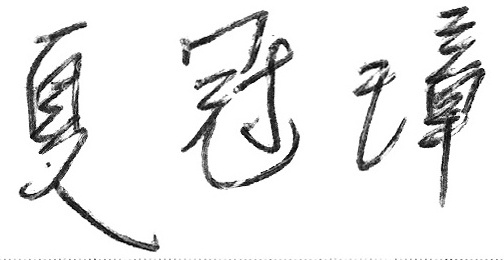 夏冠璋